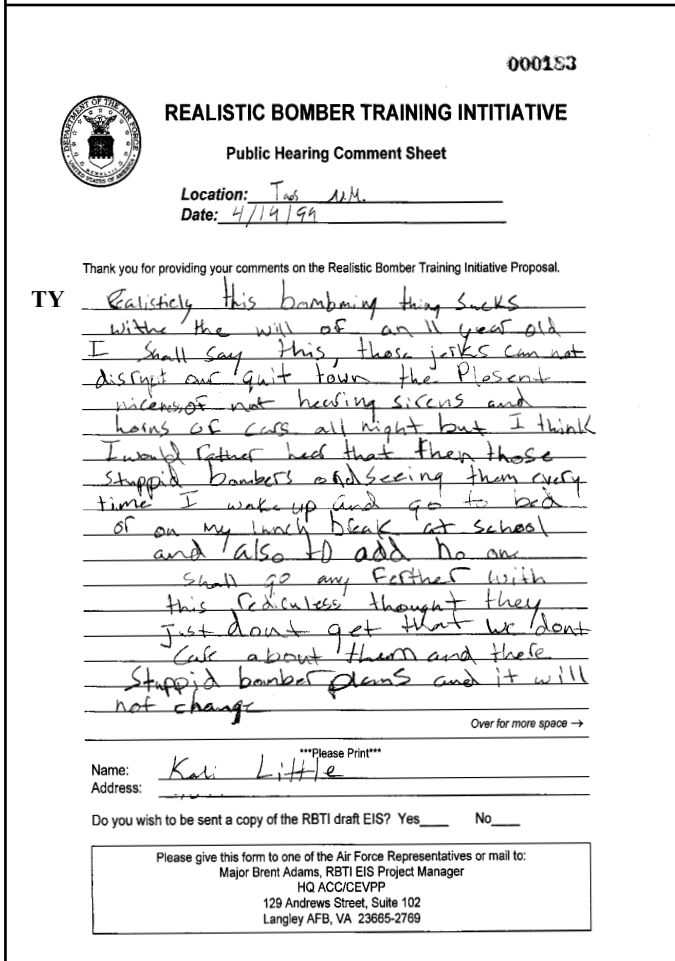 000183
DEPARTMENT OF THE AIR FORCE
UNITED STATES OF AMERICA
REALISTIC BOMBER TRAINING INTITIATIVE
Public Hearing Comment Sheet
Location: Taos N.M.
Date: 4/19/99
Thank you for providing your comments on the Realistic Bomber Training Initiative Proposal.
TY
Realisticly this bombming thing sucks
withe the will of an 11 year old
I shall say this, those jerks can not
disrupt our quit town the Plesent
niceness of not hearing sirens and
horns of cars all night but I think
I would rather hear that then those
stuppid bombers and seeing them every
time I wake up and go to bed
or on my lunch break at school
and also to add no one
shall go any Ferther with
this rediculess thought they
just dont get that we dont
care about them and there
stuppid bomber plans and it will
not change
Over for more space →
***Please Print***
Name: Kali Little
Address:
Do you wish to be sent a copy of the RBTI draft EIS? Yes____ No____
Please give this form to one of the Air Force Representatives or mail to:
Major Brent Adams, RBTI EIS Project Manager
HQ ACC/CEVPP
129 Andrews Street, Suite 102
Langley AFB, VA 23665-2769